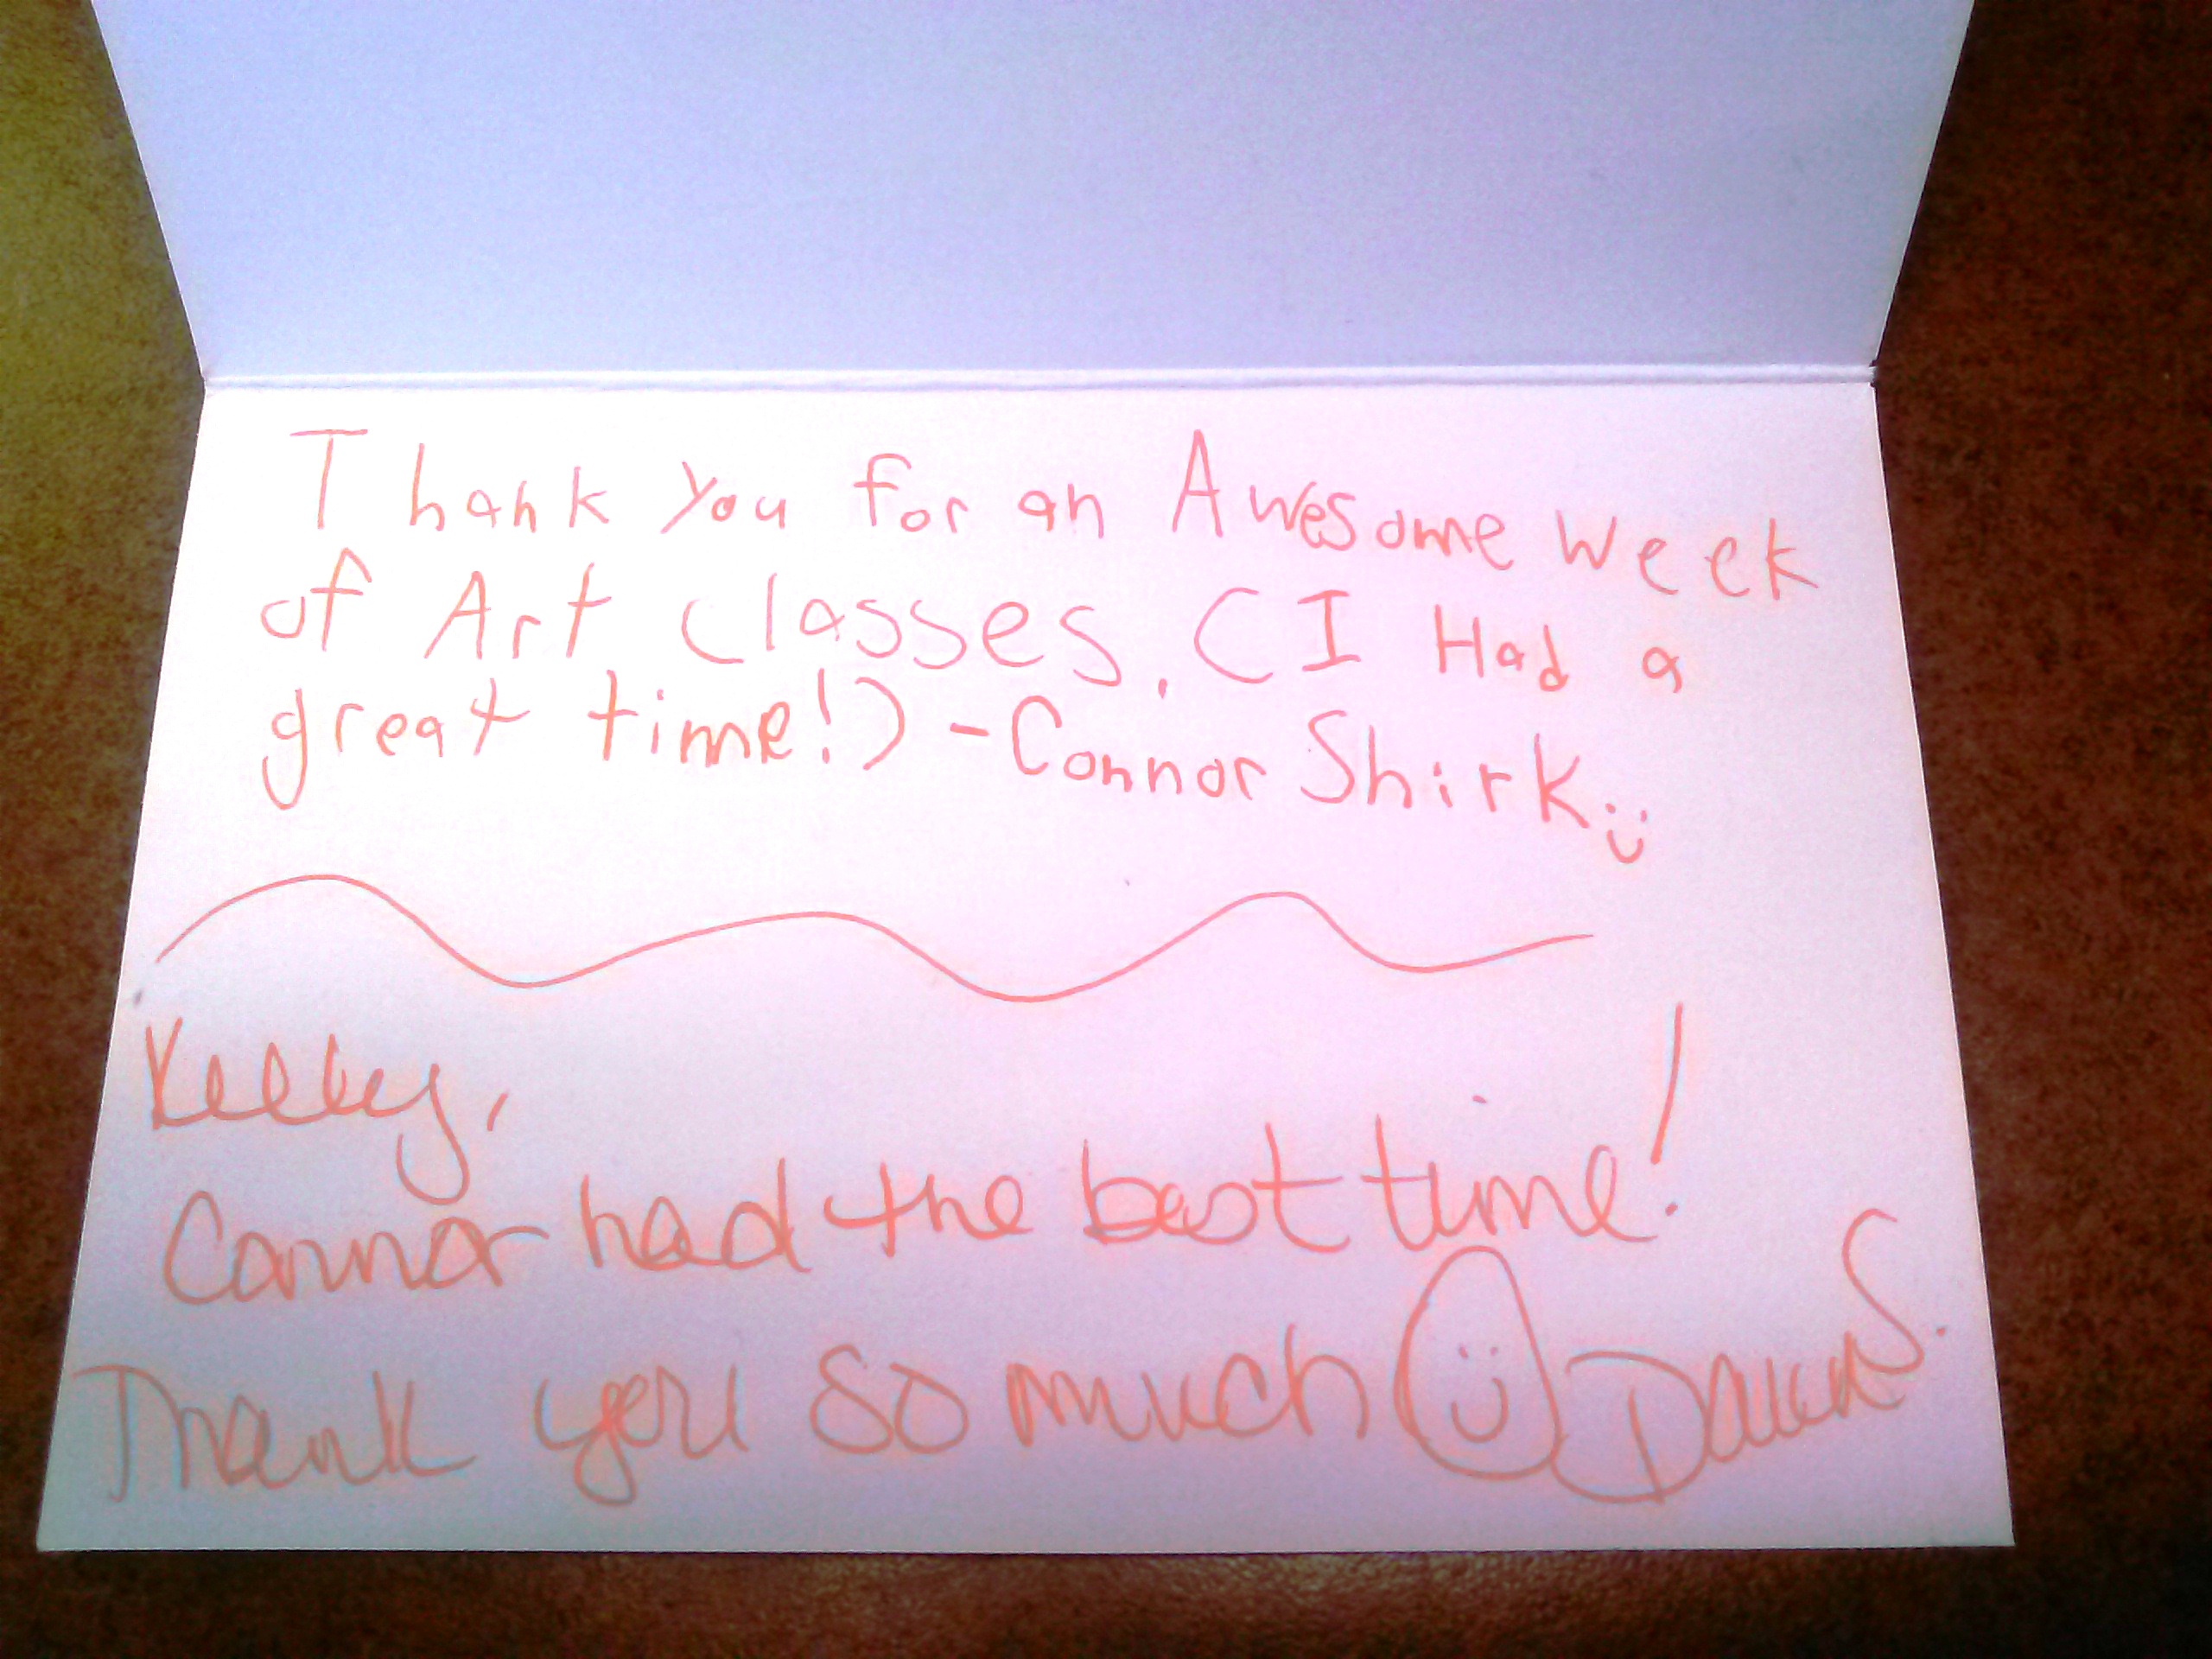 Thank you for an Awesome week
of Art Classes. (I Had a
great time!) - Connor Shirk :)
Kelly,
Connor had the best time!
Thank you so much Dawn S.